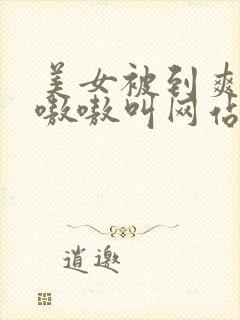 美女被到爽
嗷嗷叫网佔
逍邀